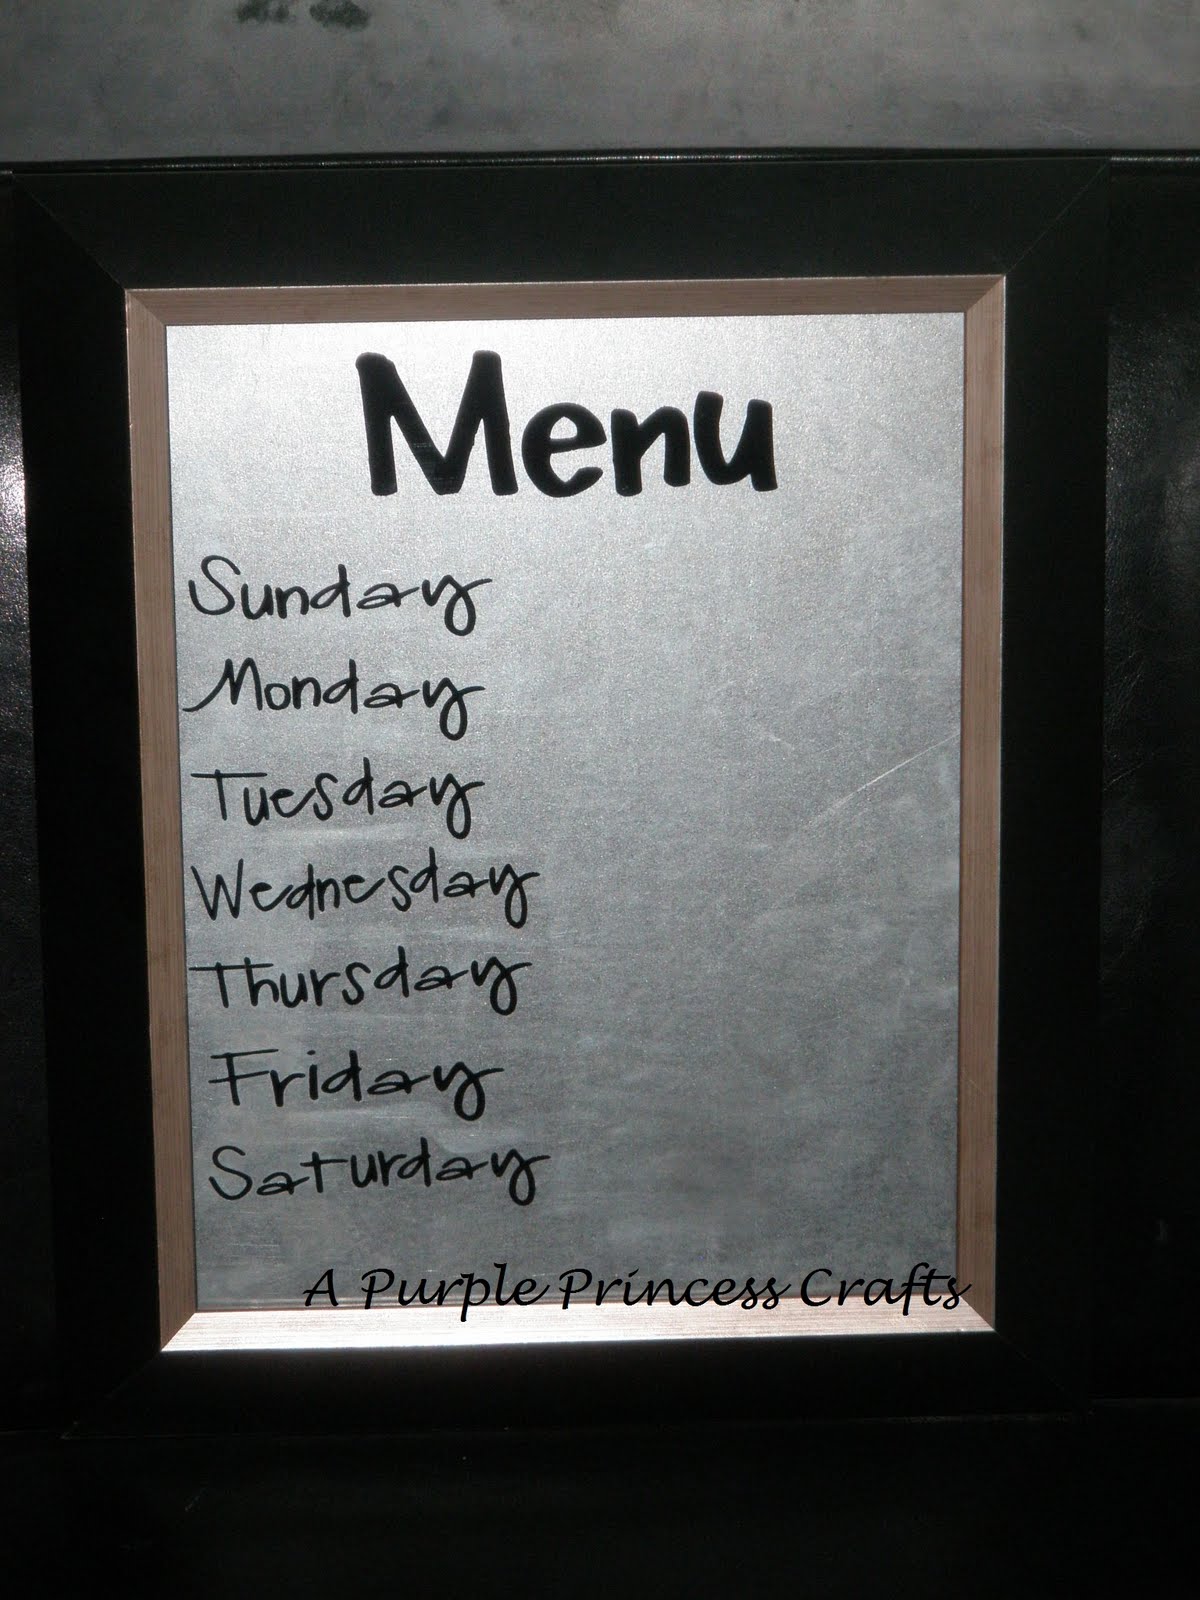 Menu
Sunday
Monday
Tuesday
Wednesday
Thursday
Friday
Saturday
A Purple Princess Crafts